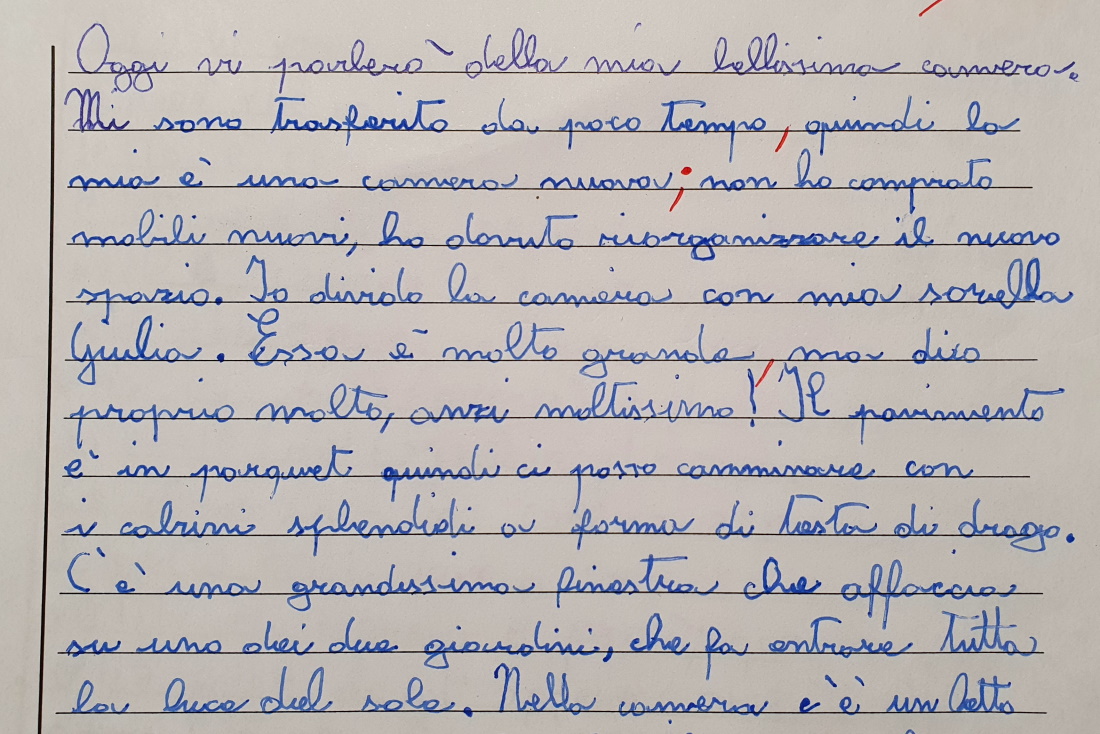 Oggi vi parlerò della mia bellissima camera.
Mi sono trasferito da poco tempo, quindi la
mia è una camera nuova; non ho comprato
mobili nuovi, ho dovuto riorganizzare il nuovo
spazio. Io divido la camera con mia sorella
Giulia. Essa è molto grande, ma dico
proprio molto, anzi moltissimo! Il pavimento
è in parquet quindi ci posso camminare con
i calzini splendidi a forma di testa di drago.
C'è una grandissima finestra che affaccia
su uno dei due giardini, che fa entrare tutta
la luce del sole. Nella camera c'è un letto